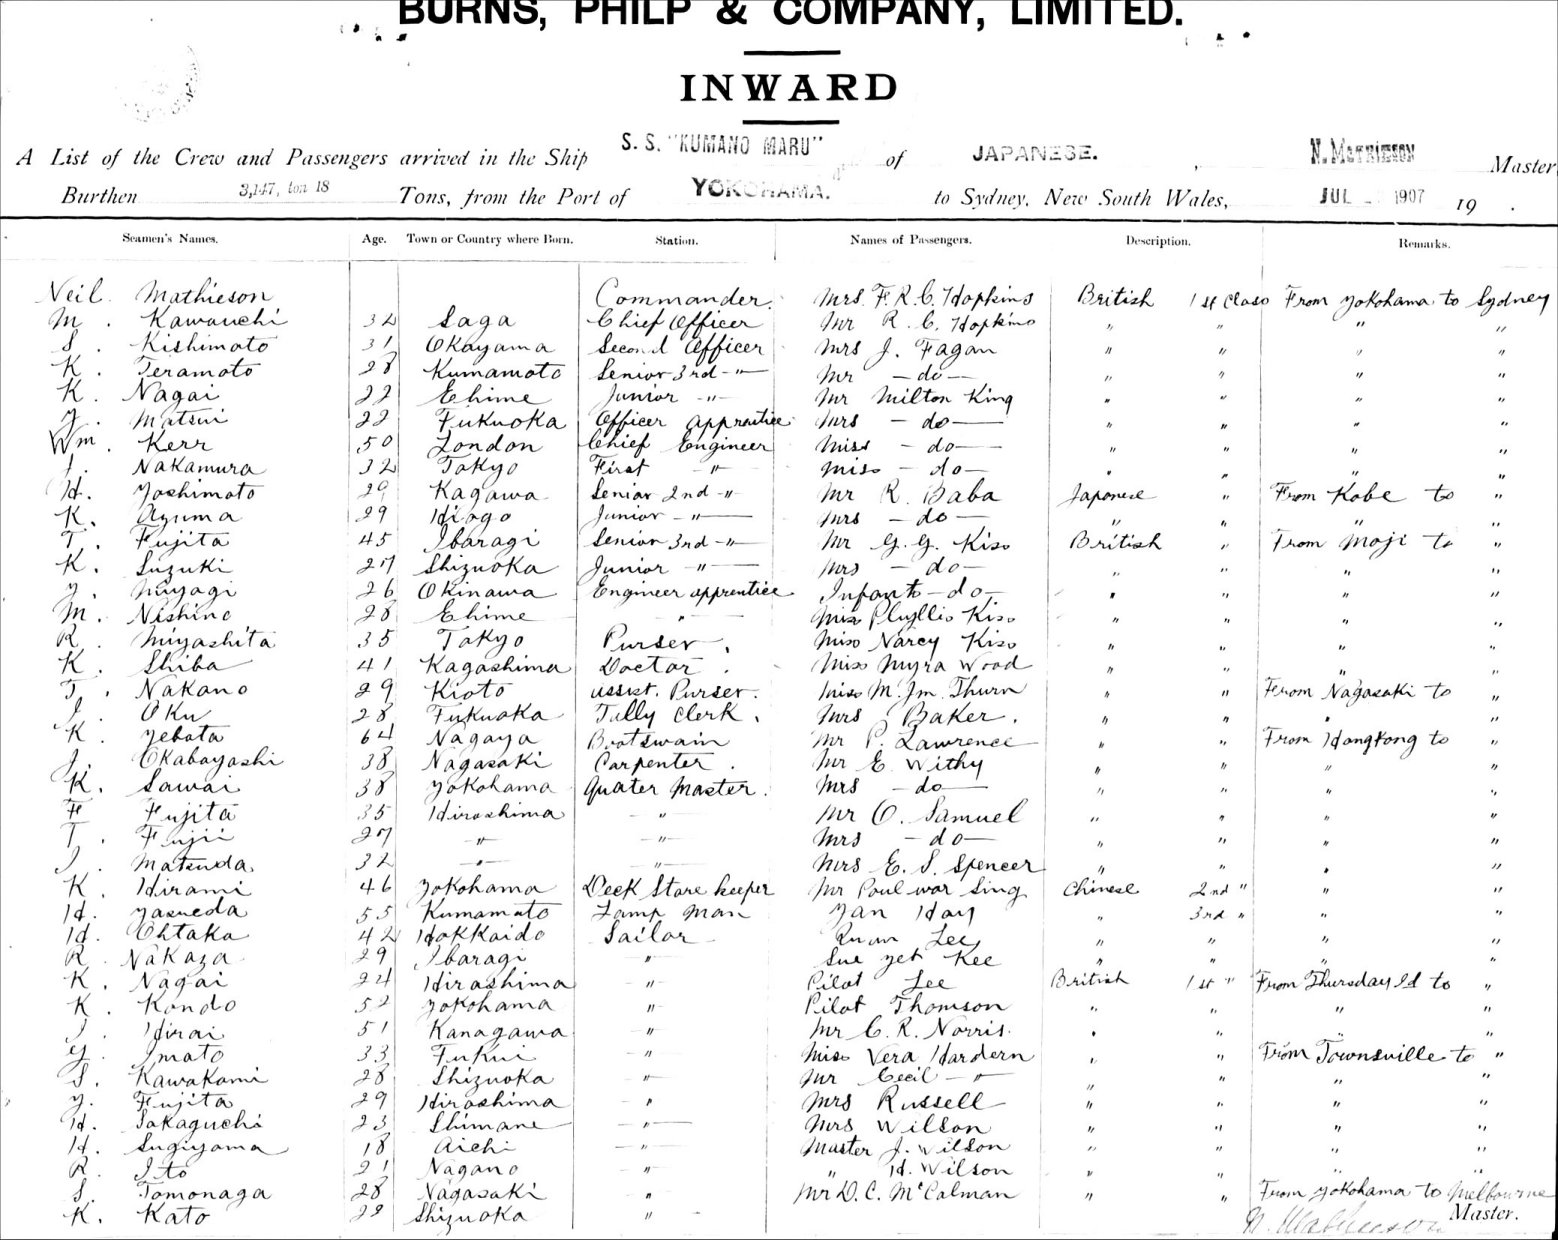 BURNS, PHILP & COMPANY, LIMITED.
INWARD
A List of the Crew and Passengers arrived in the Ship S. S. "KUMANO MARU" of JAPANESE. , N. MATHIESON Master
Burthen 3,147, ton 18 Tons, from the Port of YOKOHAMA. to Sydney, New South Wales, JUL 1907 19 .
Seamen's Names. Age. Town or Country where Born. Station. Names of Passengers. Description. Remarks.
Neil Mathieson Commander. Mrs. F. R. C. Hopkins British 1st Class From Yokohama to Sydney
M. Kawauchi 32 Saga Chief Officer Mr R. C. Hopkins " " " "
S. Kishimoto 31 Okayama Second Officer Mrs J. Fagan " " " "
K. Teramoto 28 Kumamoto Senior 3rd -"- Mr - do - " " " "
K. Nagai 22 Ehime Junior -"- Mr Milton King " " " "
Y. Matsui 22 Fukuoka Officer apprentice Mrs - do - " " " "
Wm. Kerr 50 London Chief Engineer Miss - do - " " " "
J. Nakamura 32 Tokyo First -"- Miss - do - " " " "
H. Yoshimoto 29 Kagawa Senior 2nd -"- Mr R. Baba Japanese " From Kobe to "
K. Azuma 29 Hiogo Junior -"- Mrs - do - " " " "
T. Fujita 45 Ibaragi Senior 3rd -"- Mr G. G. Kiso British " From Moji to "
K. Suzuki 27 Shizuoka Junior -"- Mrs - do - " " " "
Y. Miyagi 26 Okinawa Engineer apprentice Infant - do - " " " "
M. Nishino 28 Ehime " Miss Phyllis Kiso " " " "
R. Miyashita 35 Tokyo Purser. Miss Narcy Kiso " " " "
K. Shiba 41 Kagoshima Doctor. Miss Myra Wood " " " "
T. Nakano 29 Kioto Assist. Purser. Miss M. Im. Thurn " " From Nagasaki to "
J. Oku 28 Fukuoka Tally Clerk. Mrs Baker. " " " "
K. Yebata 64 Nagoya Boatswain Mr P. Lawrence " " From Hongkong to "
J. Okabayashi 38 Nagasaki Carpenter. Mr E. Withy " " " "
K. Sawai 38 Yokohama Quater Master. Mrs - do - " " " "
F. Fujita 35 Hiroshima -"- Mr O. Samuel " " " "
T. Fujii 27 -"- -"- Mrs - do - " " " "
J. Matsuda 32 -"- -"- Mrs E. S. Spencer " " " "
K. Hirami 46 Yokohama Deck Store keeper Mr Poul war Sing Chinese 2nd " " "
H. Yasueda 55 Kumamoto Lamp Man Yan Hay " 3rd " " "
H. Ohtaka 42 Hokkaido Sailor Quan Lee " " " "
R. Nakaza 29 Ibaragi " Sue Yet Kee " " " "
K. Nagai 24 Hiroshima -"- Pilot Lee British 1st " From Thursday Id to "
K. Kondo 52 Yokohama -"- Pilot Thomson " " " "
J. Hirai 51 Kanagawa -"- Mr C. R. Norris. " " " "
Y. Imoto 33 Fukui -"- Miss Vera Hardern " " From Townsville to "
S. Kawakami 28 Shizuoka -"- Mr Cecil -"- " " " "
Y. Fujita 29 Hiroshima -"- Mrs Russell " " " "
H. Sakaguchi 23 Shimane -"- Mrs Wilson " " " "
H. Sugiyama 18 Aichi -"- Master J. Wilson " " " "
R. Ito 21 Nagano -"- " H. Wilson " " " "
S. Tomonaga 28 Nagasaki -"- Mr D. C. McCalman " " From Yokohama to Melbourne
K. Kato 22 Shizuoka " N. Mathieson Master.